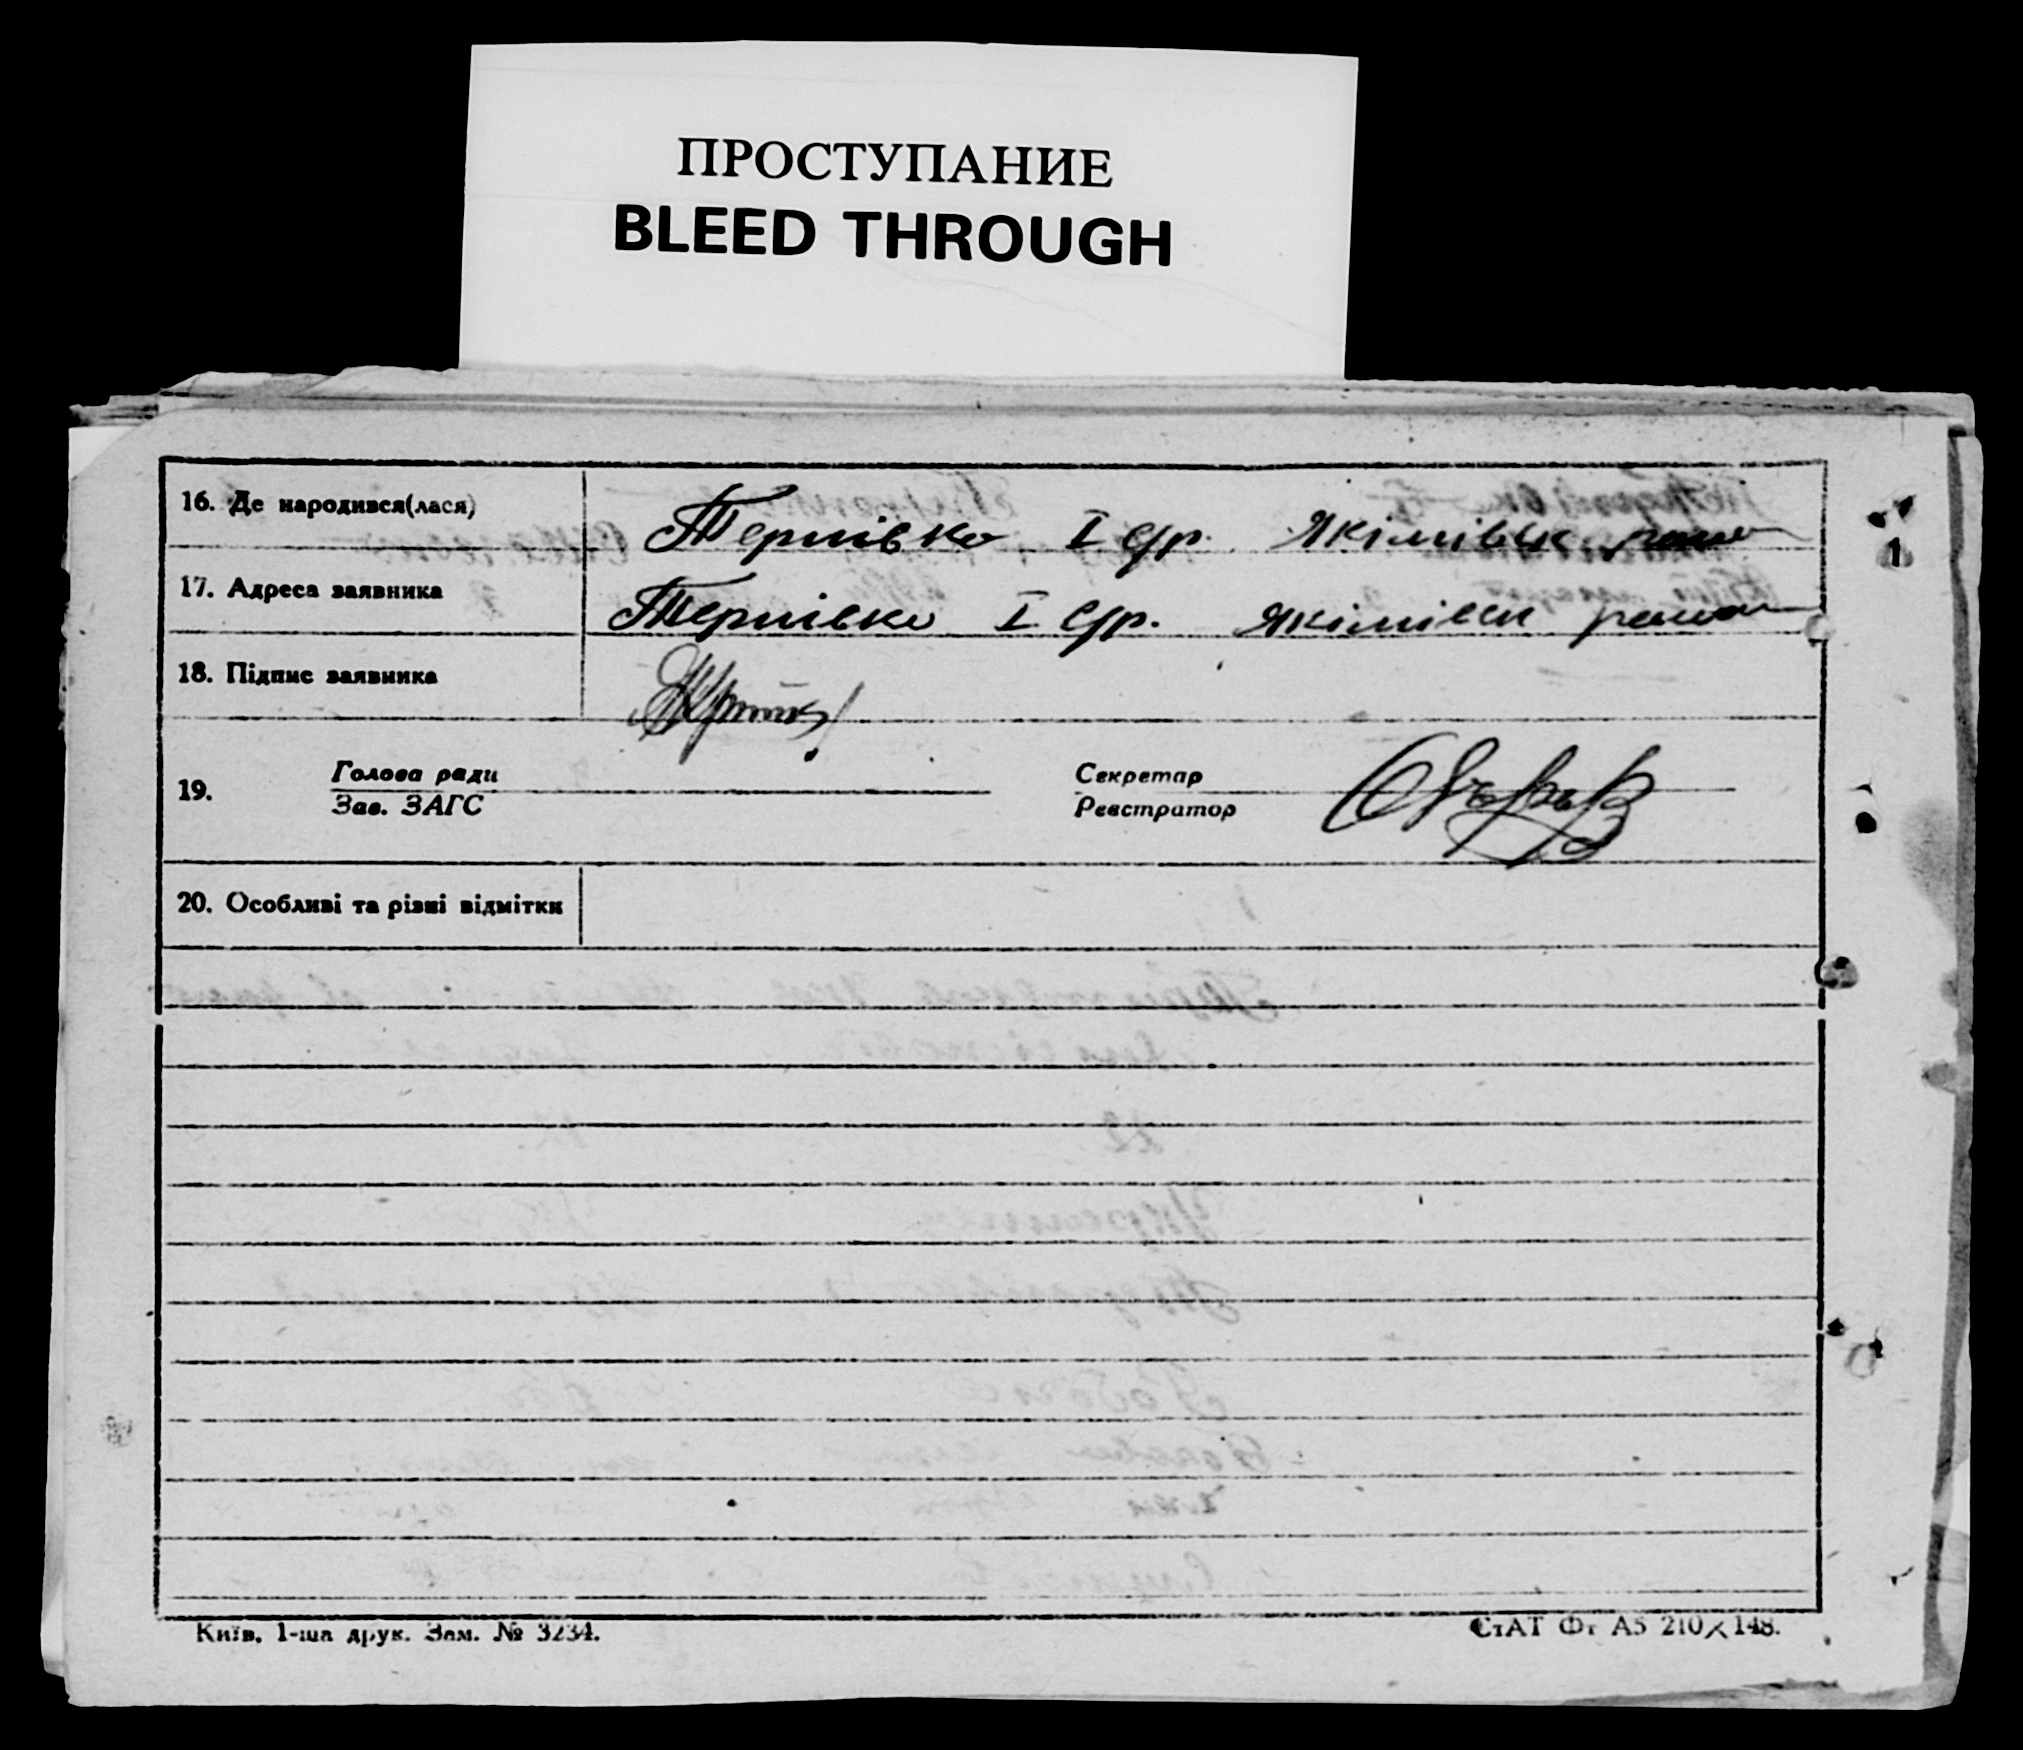 ПРОСТУПАНИЕ
BLEED THROUGH
16. Де народився(лася) Терпівко I с/р. Якімівськ району
17. Адреса заявника Терпівко I с/р. Якімівськ району
18. Підпис заявника
19. Голова ради Секретар
Зав. ЗАГС Реєстратор
20. Особливі та різні відмітки
Київ. 1-ша друк. Зам. № 3234. СтАТ Фт А5 210×148.
1